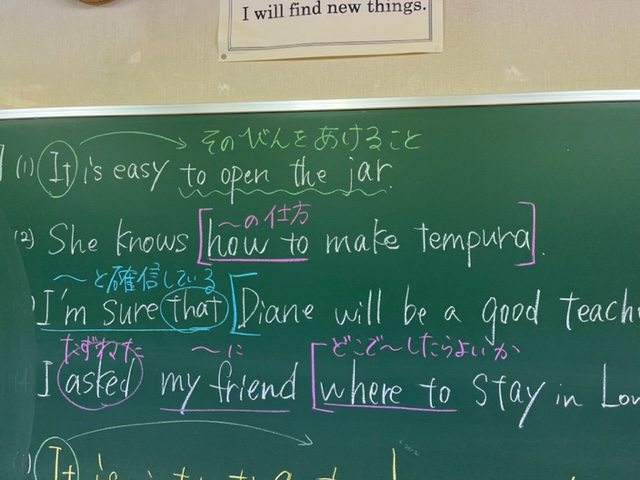 I will find new things.
そのびんをあけること
(1) It is easy to open the jar.
〜の仕方
(2) She knows [how to make tempura].
〜と確信している
I'm sure that [Diane will be a good
たずねた 〜に どこで〜したらよいか
I asked my friend [where to stay in
It is